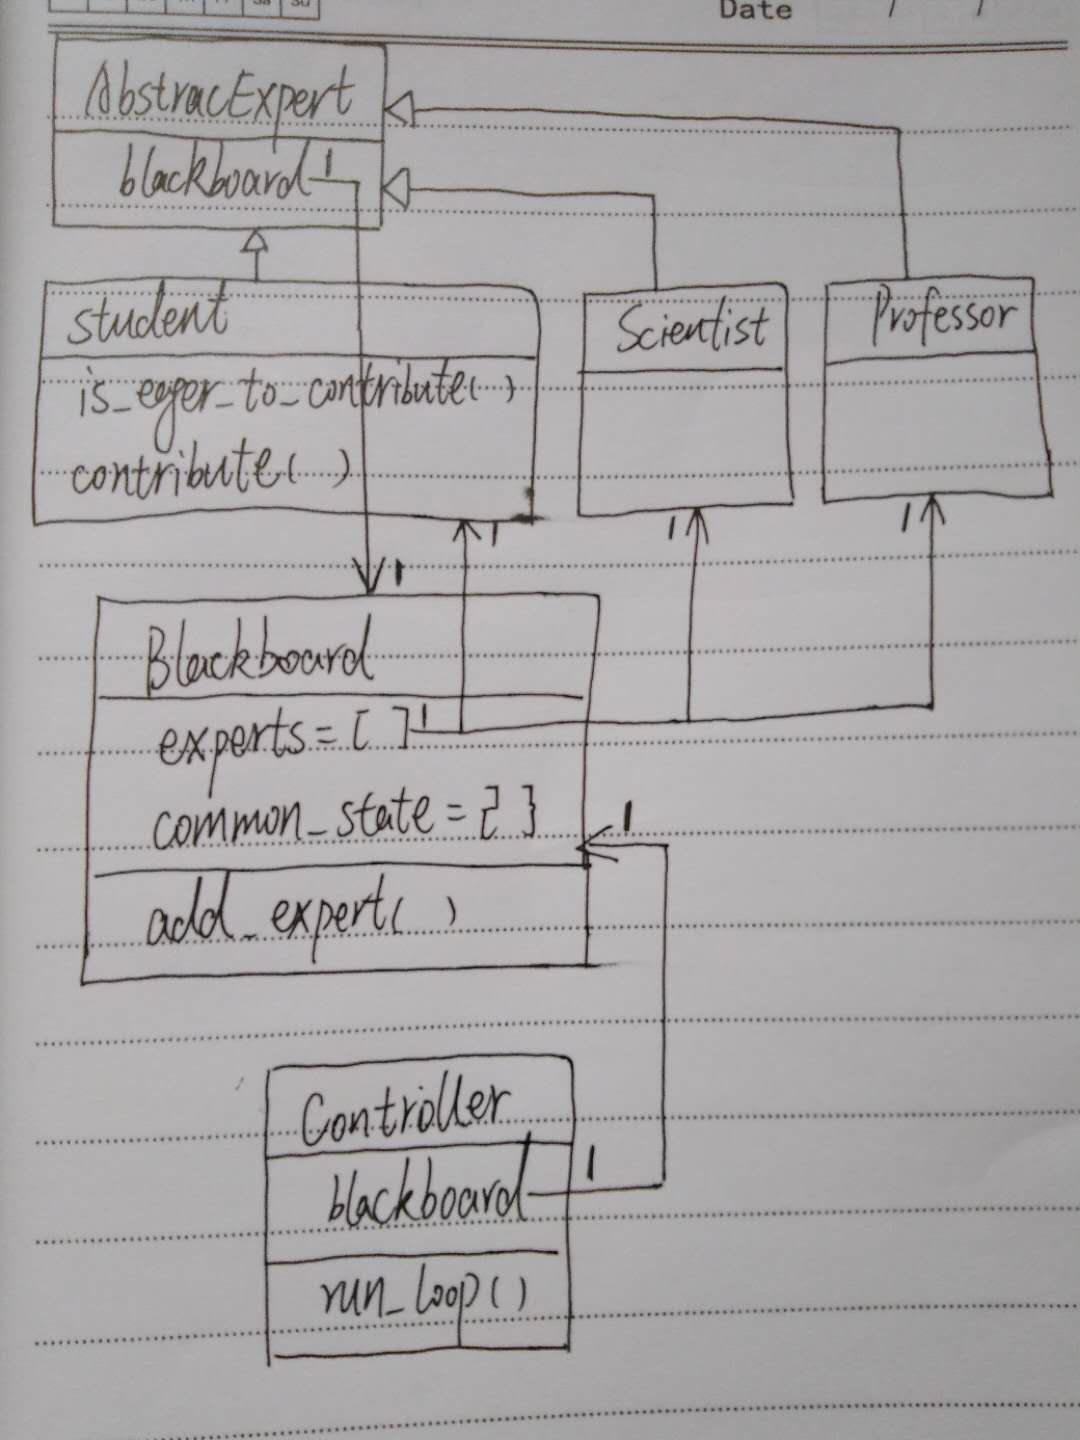 Date / /
AbstracExpert
blackboard 1
student
is_eger_to_contribute( )
contribute( )
Scientist
Professor
1 1 1
1
Blackboard
experts = [ ] 1
common_state = { }
1
add_expert( )
Controller
blackboard 1
run_loop()